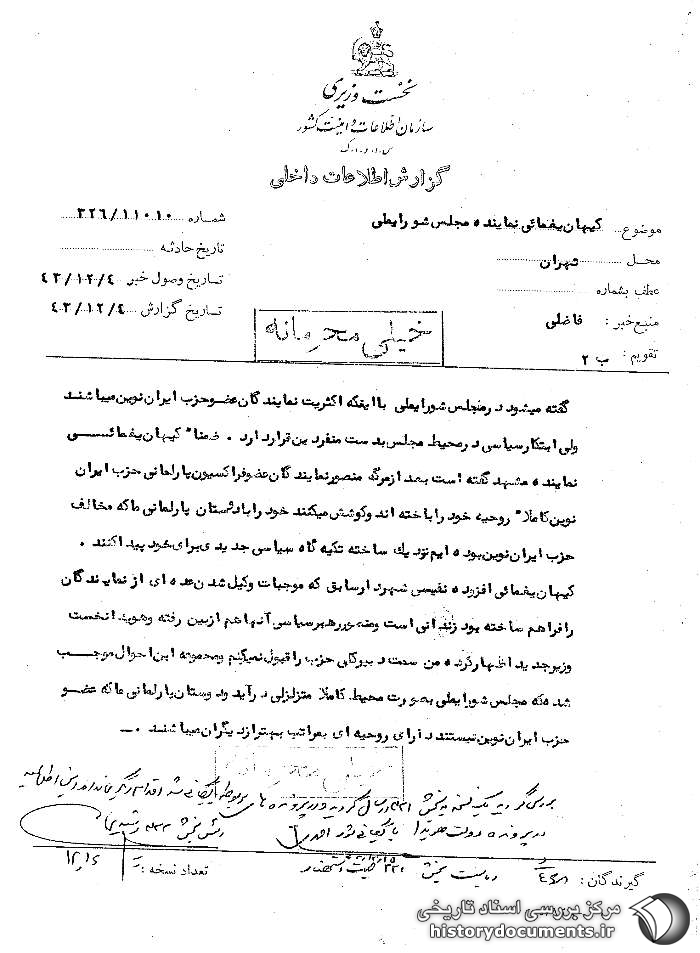 نخست وزیری
سازمان اطلاعات و امنیت کشور
س.ا.و.ا.ک
گزارش اطلاعات داخلی
موضوع کیهان یغمائی نماینده مجلس شورایملی
محل تهران
عطف بشماره
منبع خبر : فاضلی
تقویم : ب ۲
شماره ۳۲۶/۱۱۰۱۰
تاریخ حادثه
تاریخ وصول خبر ۴۳/۱۲/۴
تاریخ گزارش ۴۳/۱۲/۴
خیلی محرمانه
گفته میشود در مجلس شورایملی با اینکه اکثریت نمایندگان عضو حزب ایران نوین میباشند
ولی ابتکار سیاسی در محیط مجلس بدست منفردین قرار دارد . ضمنا" کیهان یغمائی
نماینده مشهد گفته است بعد از مرگ منصور نمایندگان عضو فراکسیون پارلمانی حزب ایران
نوین کاملا" روحیه خود را باخته اند و کوشش میکنند خود را با دوستان پارلمانی ما که مخالف
حزب ایران نوین بوده ایم نزدیک ساخته تکیه گاه سیاسی جدیدی برای خود پیدا کنند .
کیهان یغمائی افزوده نفیسی شهردار سابق که موجبات وکیل شدن عده ای از نمایندگان
را فراهم ساخته بود زندانی است و منصور رهبر سیاسی آنها هم از بین رفته و هویدا نخست
وزیر جدید اظهار کرده من سمت دبیرکلی حزب را قبول نمیکنم و مجموعه این احوال موجب
شده که مجلس شورایملی بصورت محیط کاملا متزلزلی درآید و دوستان پارلمانی ما که عضو
حزب ایران نوین نیستند دارای روحیه ای بمراتب بهتر از دیگران میباشند .
خیلی محرمانه
بررسی گردید یک نسخه به بخش ۳۲۱ ارسال گردید و در پرونده های مربوطه بایگانی شد
در پرونده دولت هویدا بایگانی شود
رئیس بخش
گیرندگان :
ریاست بخش ۳۲۱
تعداد نسخه :
۱۲/۶
مرکز بررسی اسناد تاریخی
historydocuments.ir